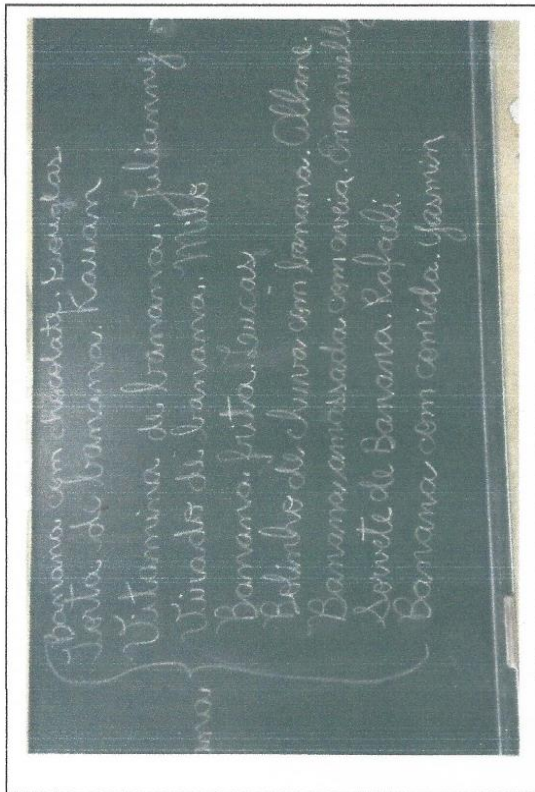 Banana com chocolate. Douglas
Torta de banana. Kauan
Vitamina de banana. Julianny
Virado de banana. Mila
Banana frita. Lucas
Bolinho de chuva com banana. Albane.
Banana amassada com aveia. Emanuelly
Sorvete de Banana. Rafaeli.
Banana com comida. Yasmin